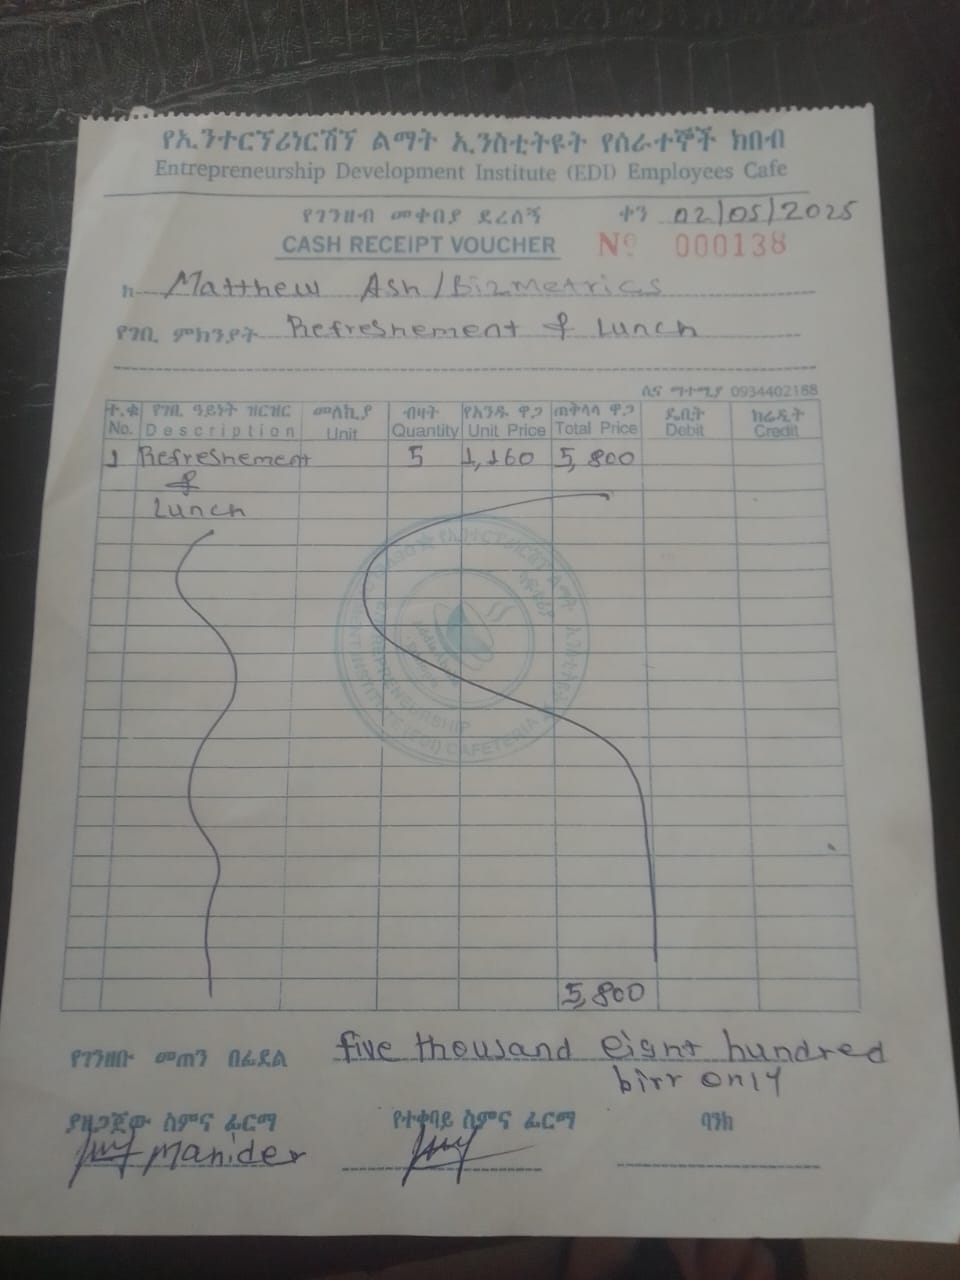 የኢንተርፕሪነርሽፕ ልማት ኢንስቲትዩት የሰራተኞች ክበብ
Entrepreneurship Development Institute (EDI) Employees Cafe
የገንዘብ መቀበያ ደረሰኝ ቀን 02/05/2025
CASH RECEIPT VOUCHER No 000138
ከ Matthew Ash/Bizmetrics
የገቢ ምክንያት Refreshement & Lunch
ሴና ማተሚያ 0934402188
ተ.ቁ የገቢ ዓይነት ዝርዝር መለኪያ ብዛት የአንዱ ዋጋ ጠቅላላ ዋጋ ዴቢት ክሬዲት
No. Description Unit Quantity Unit Price Total Price Debit Credit
1 Refreshement 5 1,160 5,800
&
Lunch
5,800
የገንዘቡ መጠን በፊደል five thousand eight hundred
birr only
ያዘጋጀው ስምና ፊርማ የተቀባይ ስምና ፊርማ ባንክ
Manider